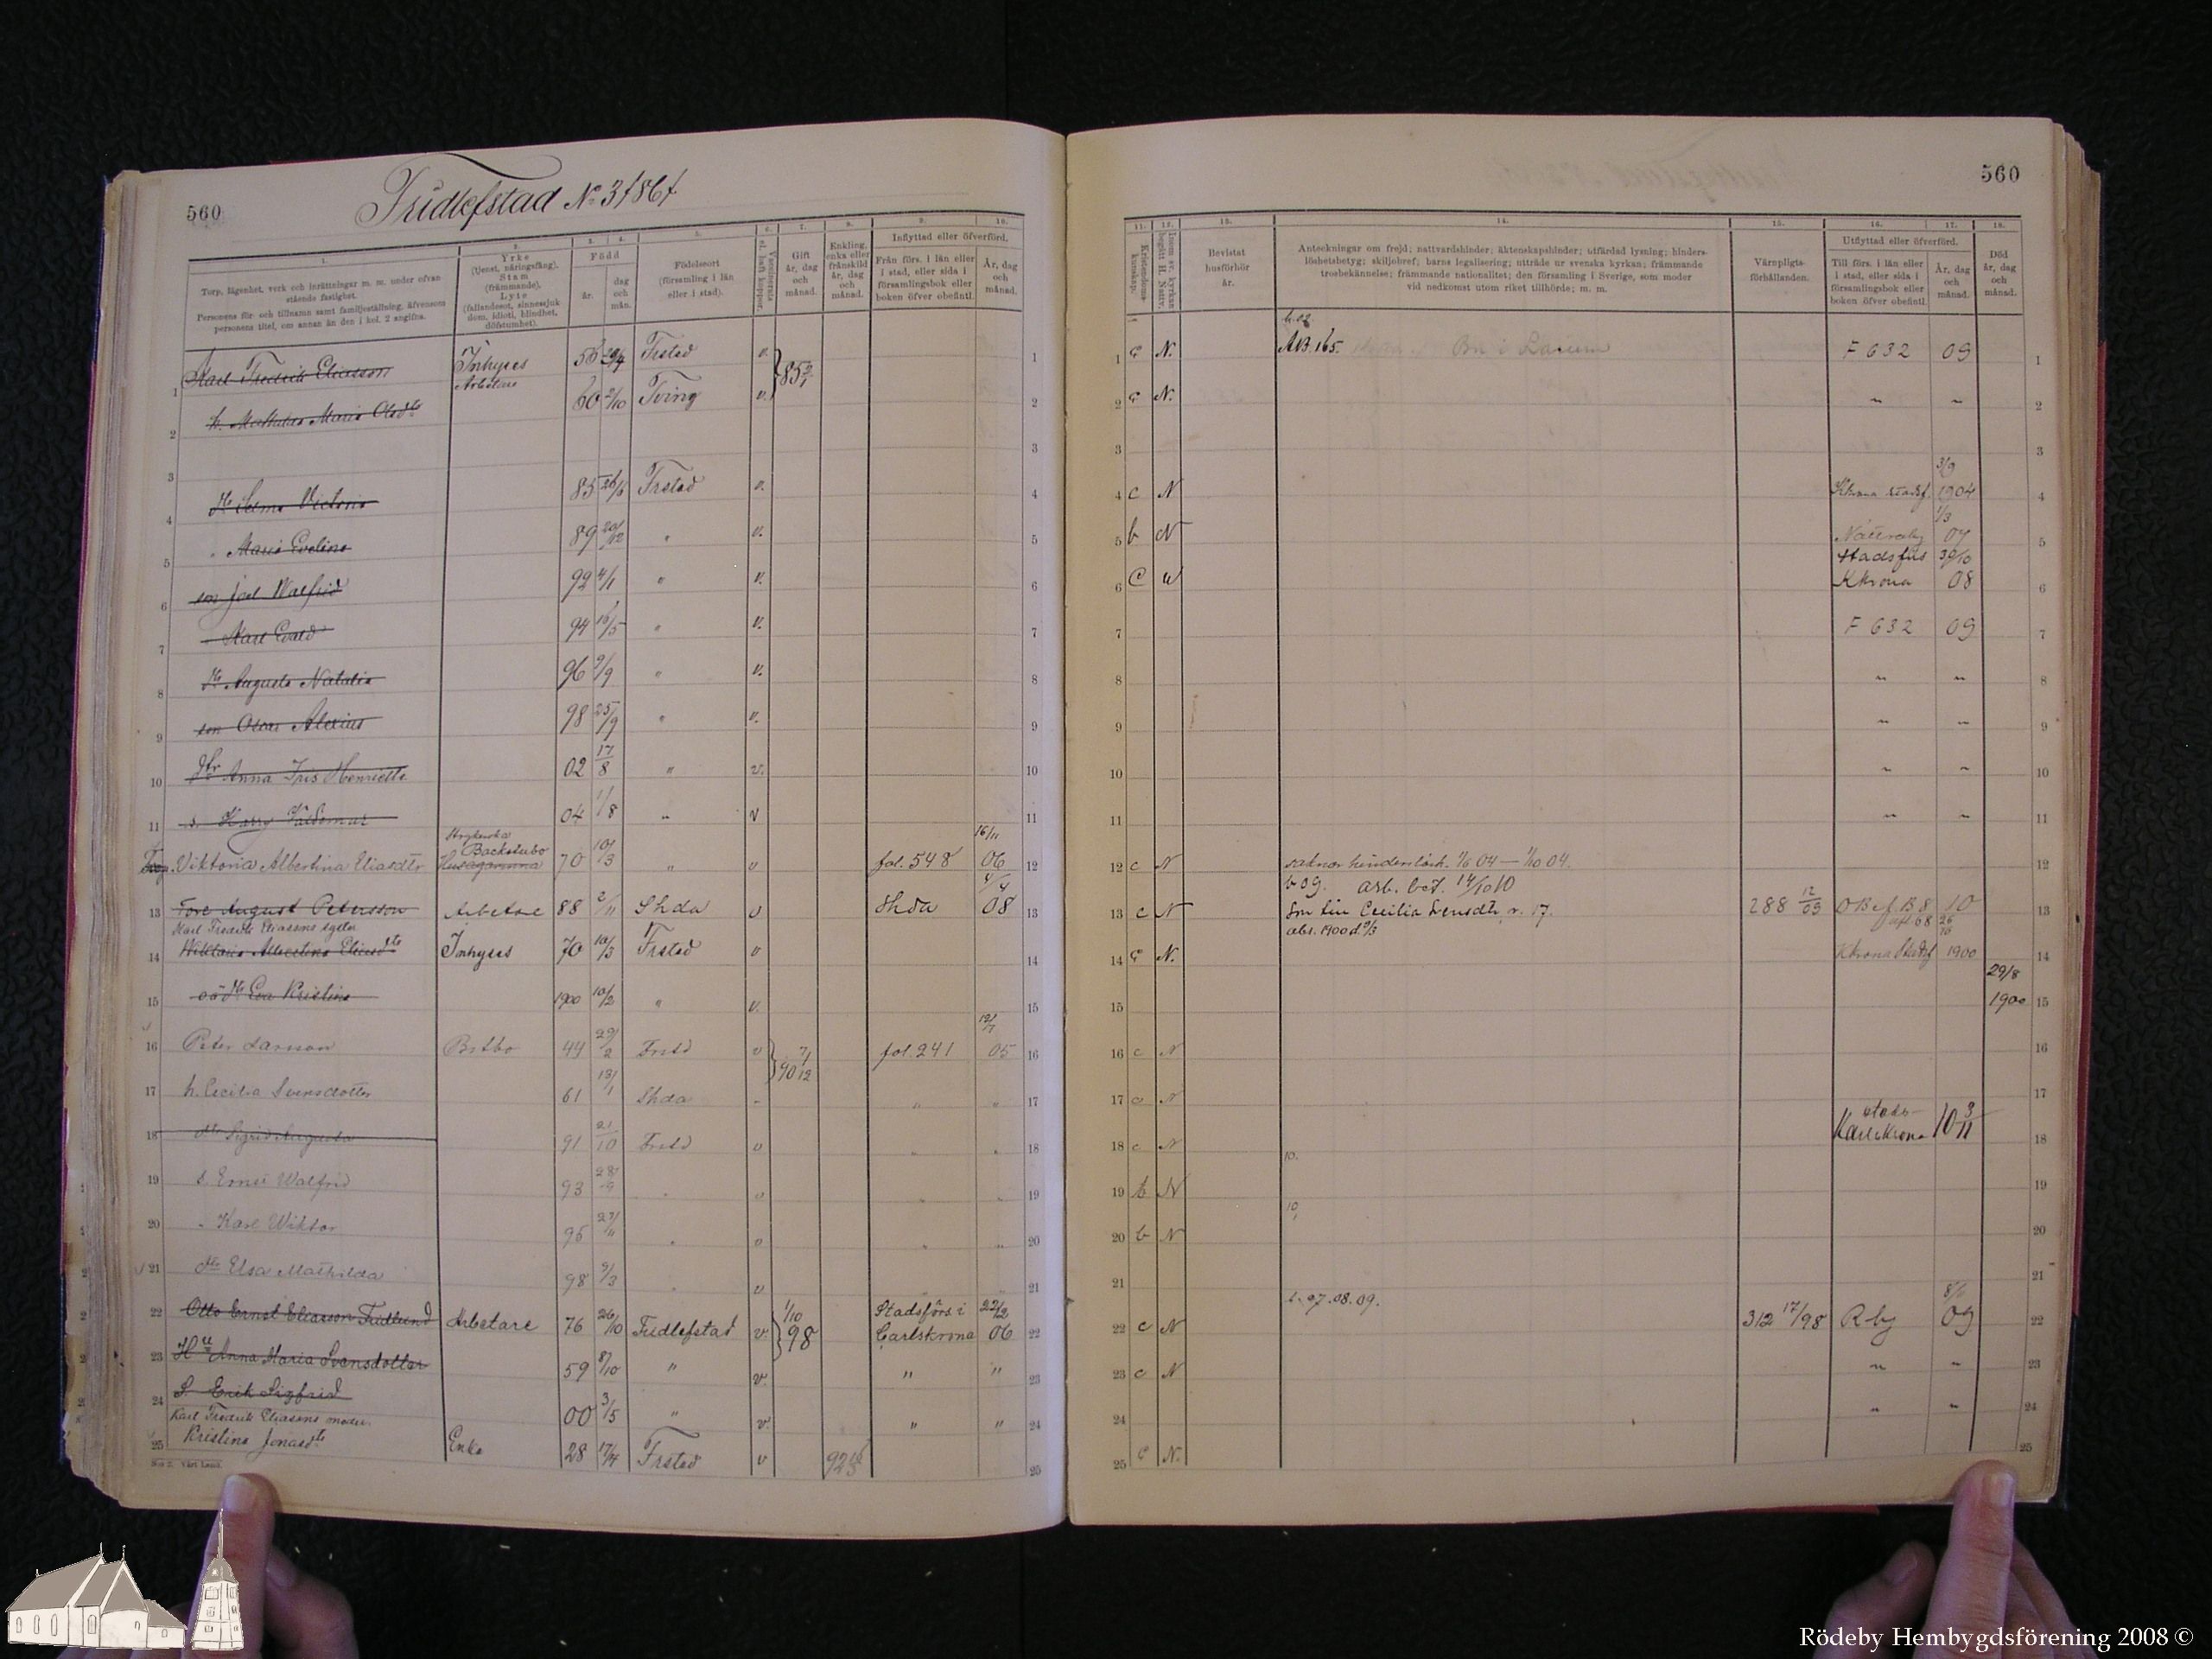 560
Fridlefstad № 3 / 86 /
1.
Torp, lägenhet, verk och inrättningar m. m. under ofvan
stående fastighet.
Personens för- och tillnamn samt familjeställning, äfvensom
personens titel, om annan än den i kol. 2 angifna.
2.
Yrke
(tjenst, näringsfång).
Stam
(främmande).
Lyte
(fallandesot, sinnessjuk-
dom, idioti, blindhet,
döfstumhet).
3. 4.
Född
år.
dag
och
mån.
5.
Födelseort
(församling i län
eller i stad).
6.
7.
Gift
år, dag
och
månad.
8.
Enkling,
enka eller
frånskild
år, dag
och
månad.
9. 10.
Inflyttad eller öfverförd.
Från förs. i län eller
i stad, eller sida i
församlingsbok eller
boken öfver obefintl.
År, dag
och
månad.
1 Karl Fredrik Eliasson Inhyses Arbetare 56 29/4 Frstad v. 85 1
2 h. Mathilda Maria Olsdtr 60 2/10 Tving v. 2
3 3
4 dtr Selma Victoria 85 26/6 Frstad v. 4
5 " Maria Evelina 89 20/12 " v. 5
6 son Joel Walfrid 92 4/1 " v. 6
7 " Karl Evald 94 16/5 " v. 7
8 dtr Augusta Natalia 96 9/9 " v. 8
9 son Oscar Alexius 98 25/9 " v. 9
10 dtr Anna Iris Henriette 02 17/8 " v. 10
11 s. Harry Valdemar 04 1/8 " v 11
12 Viktoria Albertina Eliasdtr Backstubo Husägarinna 70 10/3 " v fol. 548 16/11 06 12
13 Tore August Petersson Arbetare 88 2/11 Shda v Shda 4/4 08 13
Karl Fredrik Eliassons syster
14 Wiktoria Albertina Eliasdtr Inhyses 70 10/3 Frstad v 14
15 oä dtr Eva Kristina 1900 10/2 " v. 15
16 Peter Larsson Bstbo 44 29/2 Frstd v 90 fol. 241 12/7 05 16
17 h. Cecilia Svensdotter 61 13/1 Shda " " 17
18 dtr Sigrid Augusta 91 21/10 Frstd v " " 18
19 s. Ernst Walfrid 93 28/9 " v " " 19
20 " Karl Wiktor 95 " v " " 20
21 dtr Elsa Mathilda 98 9/3 " v 21
22 Otto Ernst Eliasson Fridlund Arbetare 76 26/10 Fridlefstad v. 1/10 98 Stadsförs. i Carlskrona 22/12 06 22
23 Hu Anna Maria Svensdotter 59 8/10 " v. " " 23
24 S. Erik Sigfrid 00 3/5 " v. " " 24
Karl Fredrik Eliassons moder
25 Kristina Jonasdtr Enka 28 17/4 Frstad v 92 25
560
11.
Kristendoms-
kunskap.
12.
13.
Bevistat
husförhör
år.
14.
Anteckningar om frejd; nattvardshinder; äktenskapshinder; utfärdad lysning; hinders-
löshetsbetyg; skiljobref; barns legalisering; utträde ur svenska kyrkan; främmande
trosbekännelse; främmande nationalitet; den församling i Sverige, som moder
vid nedkomst utom riket tillhörde; m. m.
15.
Värnpligts-
förhållanden.
16. 17.
Utflyttad eller öfverförd.
Till förs. i län eller
i stad, eller sida i
församlingsbok eller
boken öfver obefintl.
År, dag
och
månad.
18.
Död
år, dag
och
månad.
1 N. AB. 165. F 632 09 1
2 N. " " 2
3 3
4 c N Stadsf. 3/9 1904 4
5 b N Nättraby 1/3 07 5
6 c N Stadsförs Kkrona 30/10 08 6
7 F 632 09 7
8 " " 8
9 " " 9
10 " " 10
11 " " 11
12 c N saknar hinderslösh. 1/6 04 — 1/10 04. 12
b 09. arb. bet. 14/10 10
13 c N Son till Cecilia Svensdtr n. 17. 288 12/09 10 13
14 N. Kkrona Stadsf 1900 14
15 29/8 1900 15
16 c N 16
17 c N 17
18 c N stads- Karlskrona 10 3/11 18
19 b N 10. 19
20 b N 10 20
21 21
22 c N 07. 08. 09. 312 17/98 Rby 09 22
23 c N " " 23
24 " " 24
25 N. 25
Rödeby Hembygdsförening 2008 ©